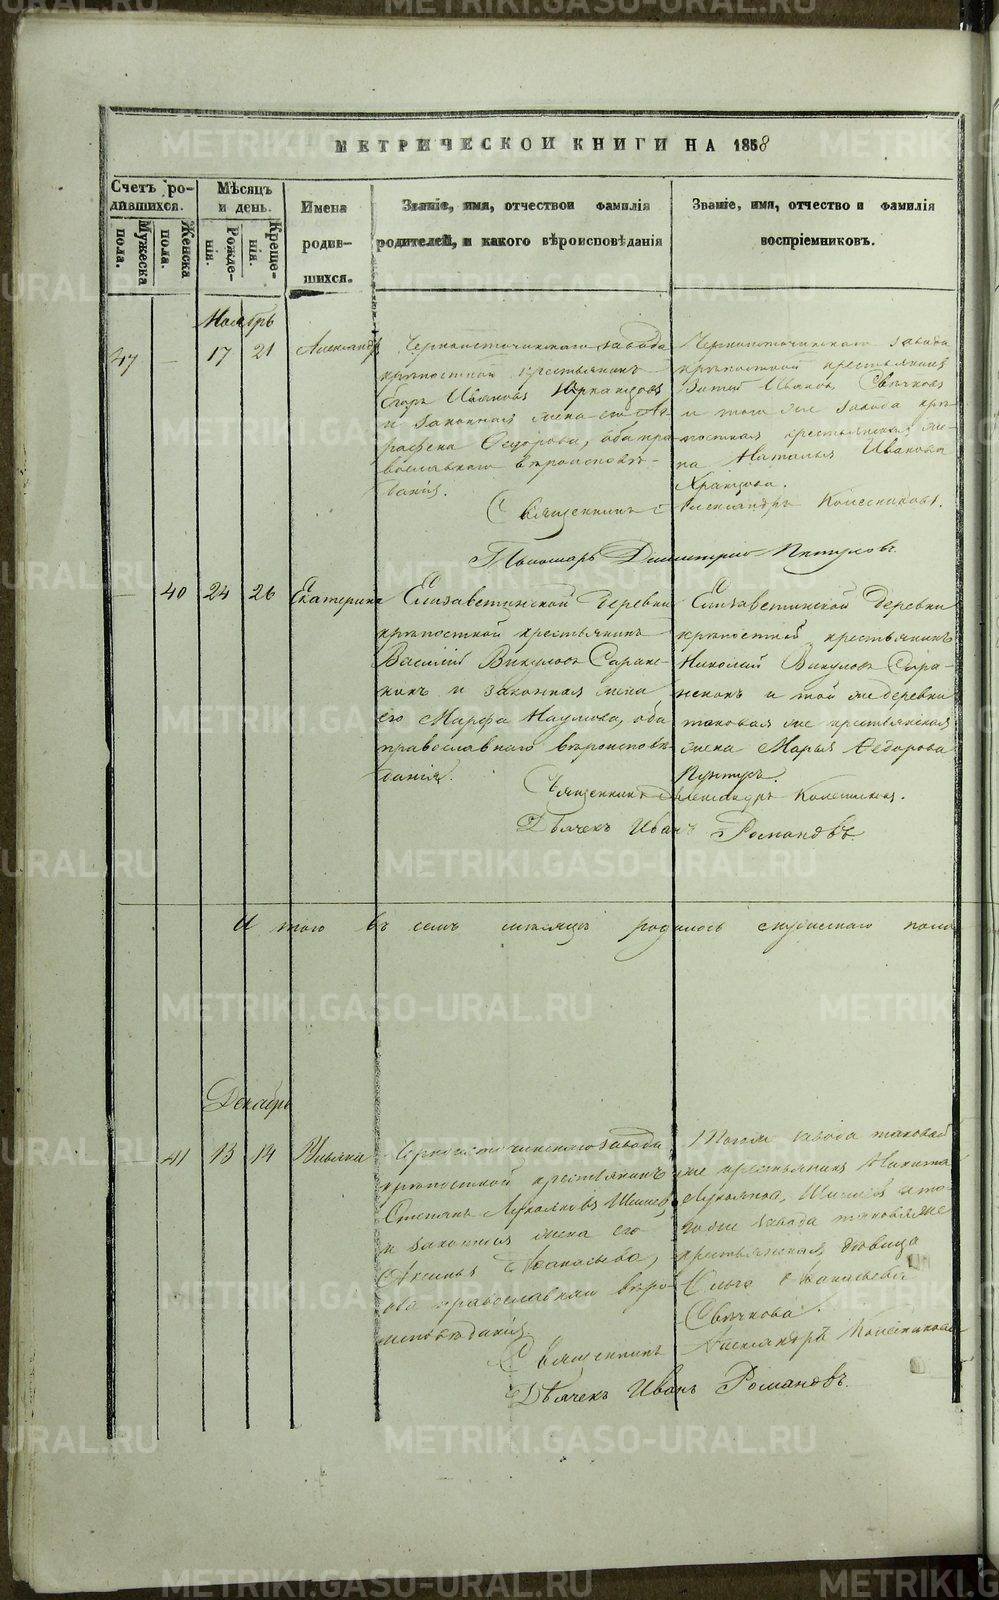 МЕТРИЧЕСКОЙ КНИГИ НА 1858
Счетъ родившихся.
Мужеска пола.
Женска пола.
Мѣсяцъ и день.
Рожденія.
Крещенія.
Имена родившихся.
Званіе, имя, отчество и фамилія родителей, и какого вѣроисповѣданія
Званіе, имя, отчество и фамилія воспріемниковъ.
Ноябрь
47 — 17 21 Александръ
Черноисточинскаго завода
крѣпостной крестьянинъ
Егоръ Ивановъ
и законная жена его Аг
рафена Федорова, оба пра
вославнаго вѣроисповѣ-
данія.
Черноисточинскаго завода
крѣпостной крестьянинъ
Ивановъ Свѣчковъ
и того же завода крѣ
постная крестьянская же
на Наталья Иванова
Храмцова.
Священникъ Александръ Колесниковъ.
Пономарь Димитрій
— 40 24 26 Екатерина
Елизаветинской деревни
крѣпостной крестьянинъ
Василій Викуловъ Саран-
кинъ и законная жена
его Марфа Наумова, оба
православнаго вѣроисповѣ
данія.
Елизаветинской деревни
крѣпостной крестьянинъ
Николай Викуловъ
и той же деревни
таковая же крестьянская
жена Марья Федорова
Священникъ Александръ Колесниковъ.
Дьячекъ Иванъ Романовъ.
И того въ семъ мѣсяцѣ родилось мужескаго пола
Декабрь
— 41 13 14 Ульяна
Черноисточинскаго завода
крѣпостной крестьянинъ
Степанъ Лукояновъ
и законная жена его
Аксинья Афанасьева,
оба православнаго вѣро
исповѣданія.
Того завода таковой
же крестьянинъ Никита
Лукояновъ и то-
го же завода таковая же
крестьянская дѣвица
Ольга Афанасьева
Свѣчкова.
Священникъ Александръ Колесниковъ
Дьячекъ Иванъ Романовъ.
METRIKI.GASO-URAL.RU